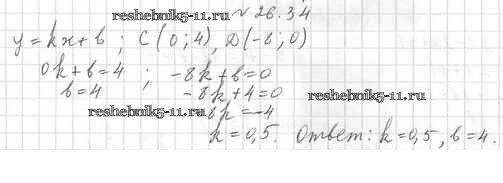 reshebnik5-11.ru № 26.34
y=kx+b; C(0;4), D(-8;0)
0k+b=4; -8k+b=0
b=4 -8k+4=0 reshebnik5-11.ru
reshebnik5-11.ru -8k=-4
k=0,5. Ответ: k=0,5, b=4.